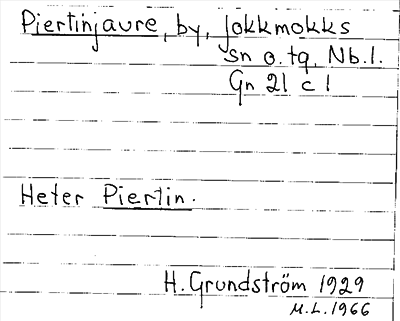 Piertinjaure, by, Jokkmokks
sn o. tg. Nb.l.
Gn 21 c 1
Heter Piertin.
H. Grundström 1929
M.L. 1966